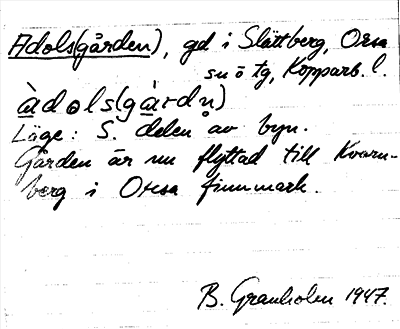 Adols(gården), gd i Slättberg, Orsa
sn ö tg, Kopparb. l.
àdɷls(gàrdn)
Läge: S. delen av byn.
Gården är nu flyttad till Kvarn-
berg i Orsa finnmark.
B. Granholm 1947.